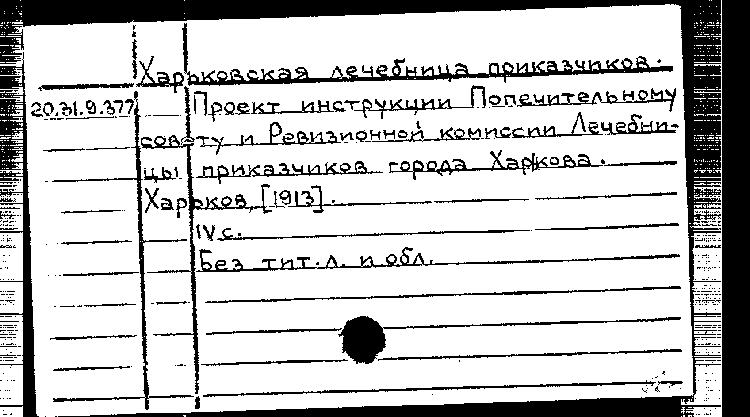 Харьковская лечебница приказчиков.
20.31.9.377 Проект инструкции Попечительному
совету и Ревизионной комиссии Лечебни-
цы приказчиков города Харкова.
Харьков, [1913].
IV с.
Без тит. л. и обл.